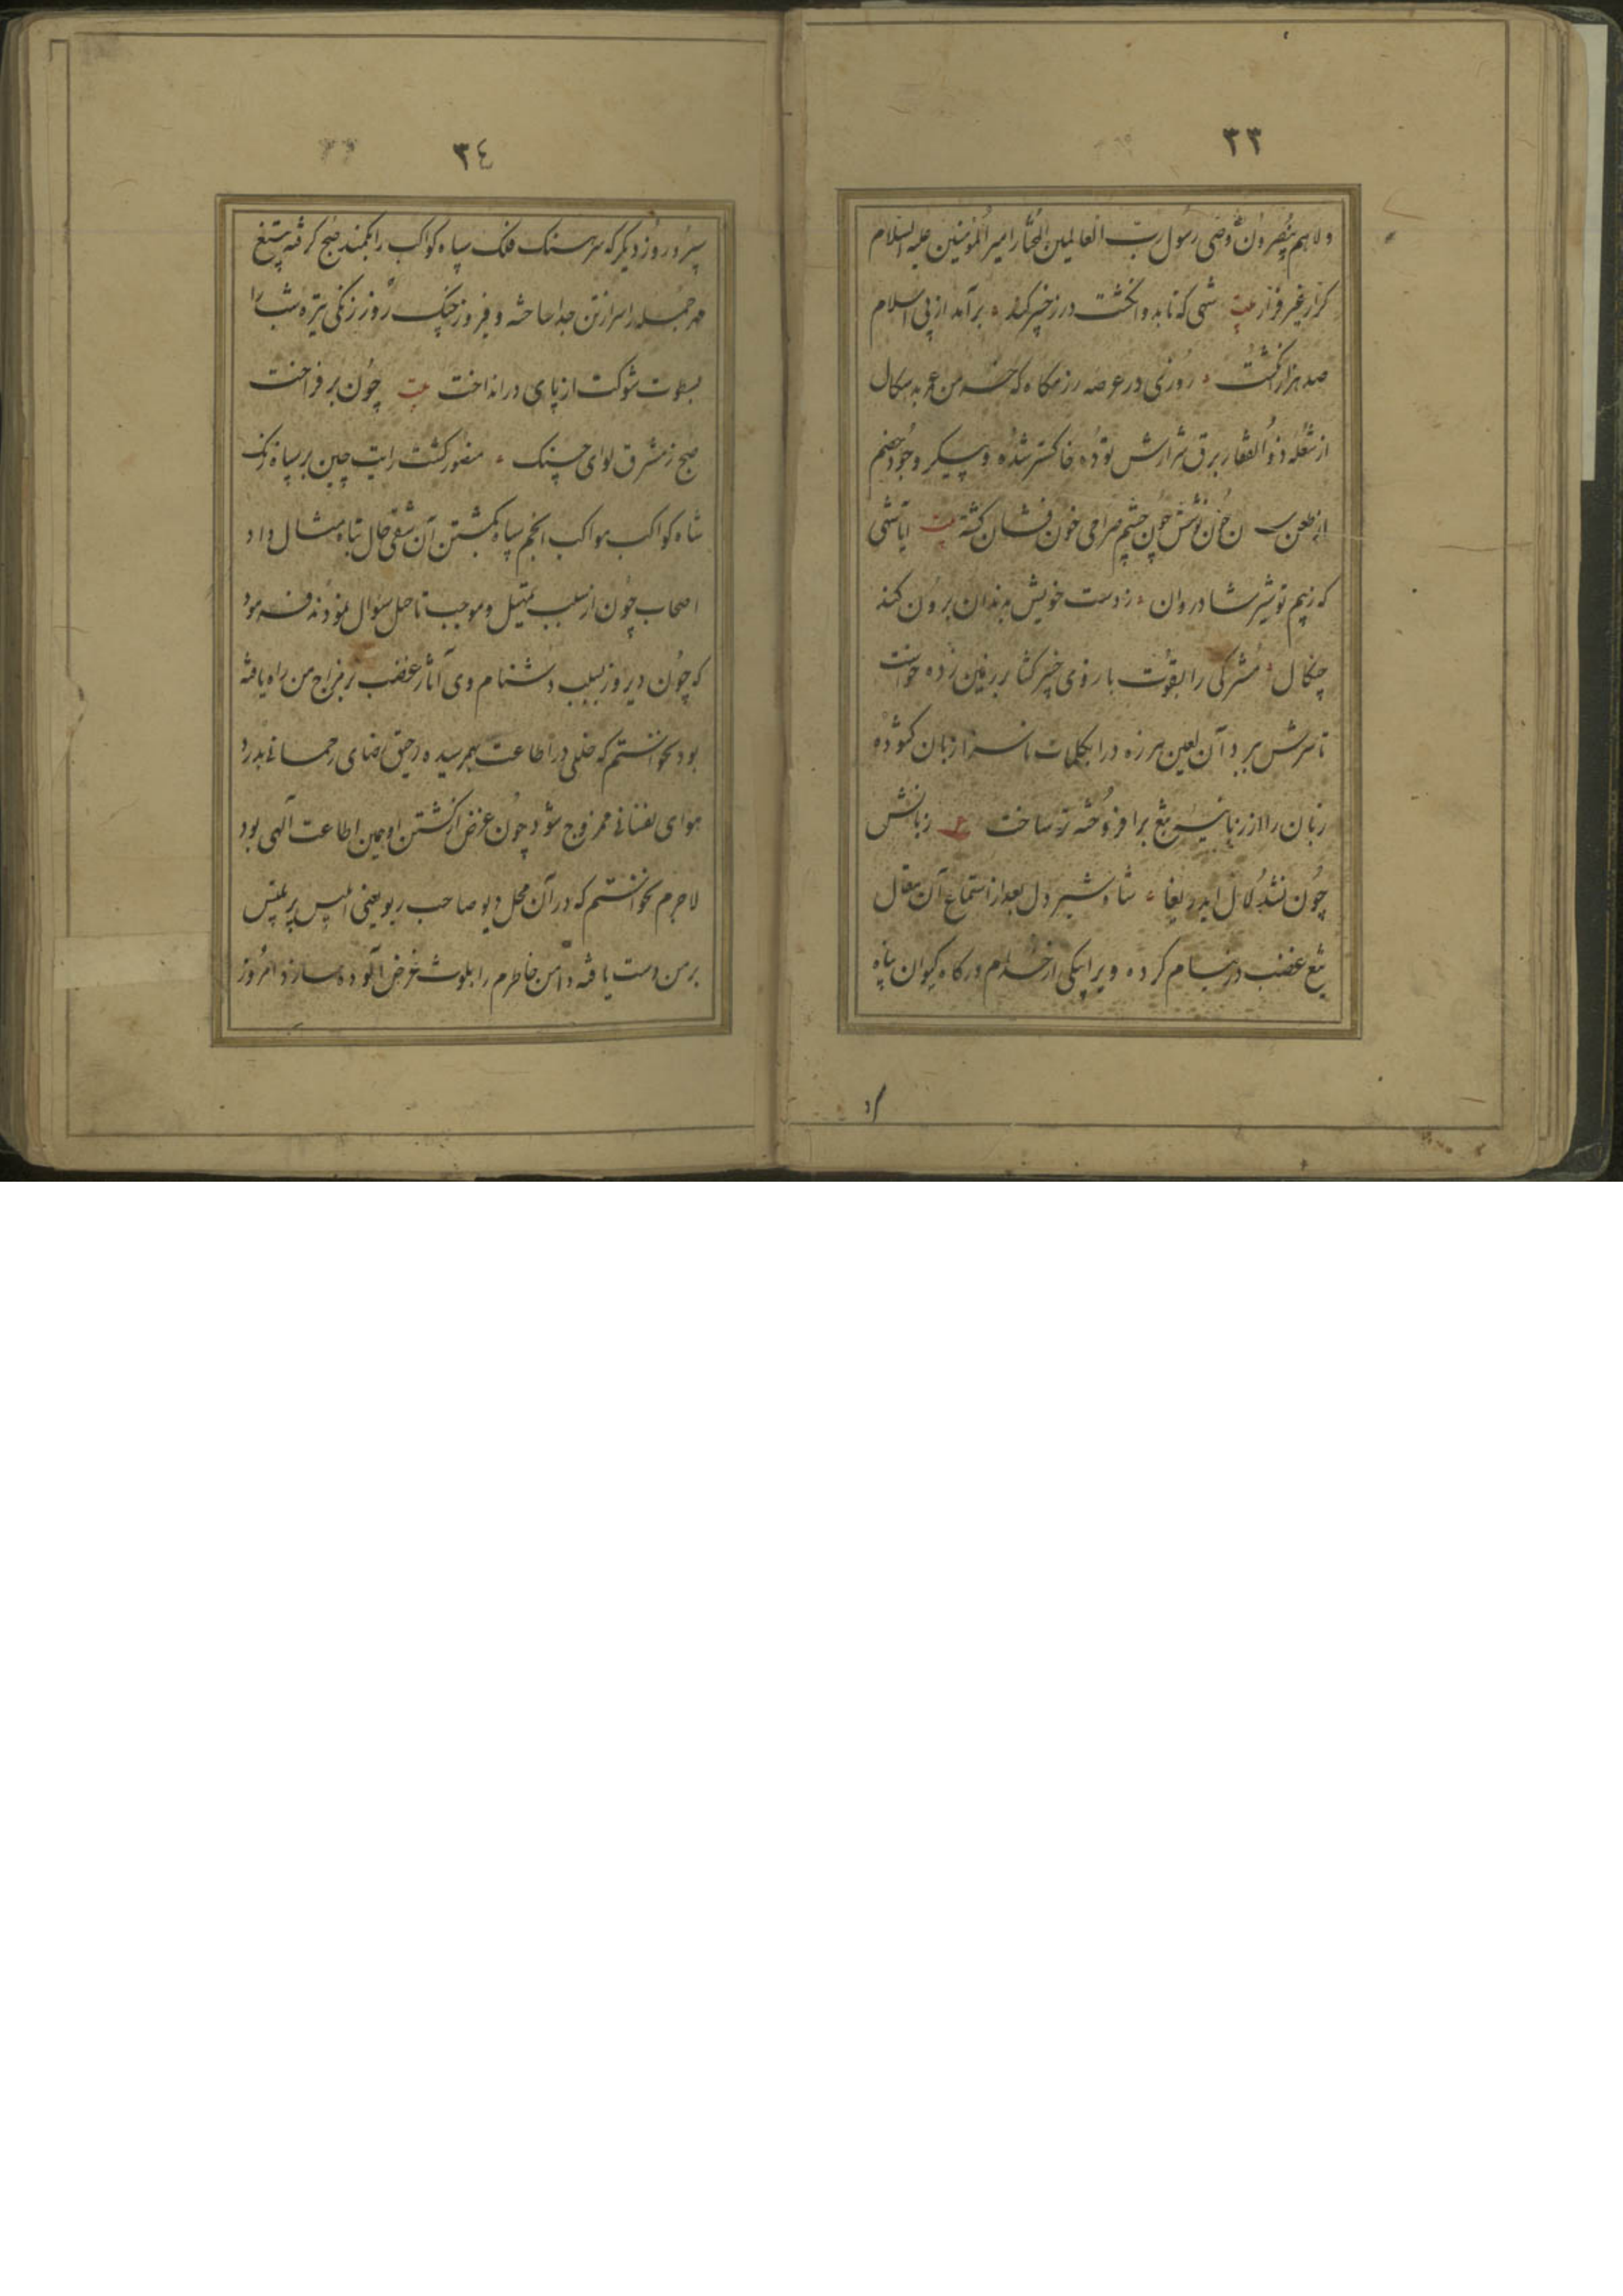 ٣٣
ولاهم ینصرون وصی رسول رب العالمین المختار امیر المؤمنین علیه السلام
کرار غیر فرار بیت شهی که تا بدو انگشت در ز خیبر کند برآمد از پی اسلام
صد هزار انگشت روزی در عرصه رزمگاه که خرمن عمر بدسکال
از شعله ذوالفقار برق شرارش توده خاکستر شده و پیکر وجود خصم
از طعن خون نوشش چون چشم صراحی خون فشان گشته بیت ایا شهی
که ز بیم تو شیر شادروان ز دست خویش بدندان برون کند
چنگال مشرکی را بقوت بازوی خیبر گشا بر زمین زده خواست
تا سرش ببرد آن لعین هرزه درا بکلمات ناسزا زبان گشوده
زبان را از زبانه تیغ برافروخته تر ساخت ع زبانش
چون نشد لال ای دریغا شاه شیر دل بعد از استماع آن مقال
تیغ غضب در نیام کرده ویرا بیکی از خدام درگاه کیوان پناه
٣٤
سپرد روز دیگر که سرهنگ فلک سپاه کواکب را بکمند صبح گرفته بتیغ
مهر جمله را سر از تن جدا ساخته و فیروز جنگ روز زنگی تیره شب را
بسطوت شوکت از پای در انداخت بیت چون بر فراخت
صبح ز مشرق لوای جنگ منصور گشت رایت چین بر سپاه زنگ
شاه کواکب مواکب انجم سپاه بکشتن آن شقی حال تباه مثال داد
اصحاب چون از سبب تمهیل و موجب تاحل سؤال نمودند فرمود
که چون دیروز بسبب دشنام وی آثار غضب بر مزاج من راه یافته
بود نخواستم که خللی در اطاعت بهم رسیده رحیق رضای رحمانی بدرد
هوای نفسانی ممزوج شود چون غرض از کشتن او همین اطاعت الهی بود
لاجرم نخواستم که در آن محل دیو صاحب ریو یعنی ابلیس پر تلبیس
بر من دست یافته دامن خاطرم را بلوث غرض آلوده سازد امروز